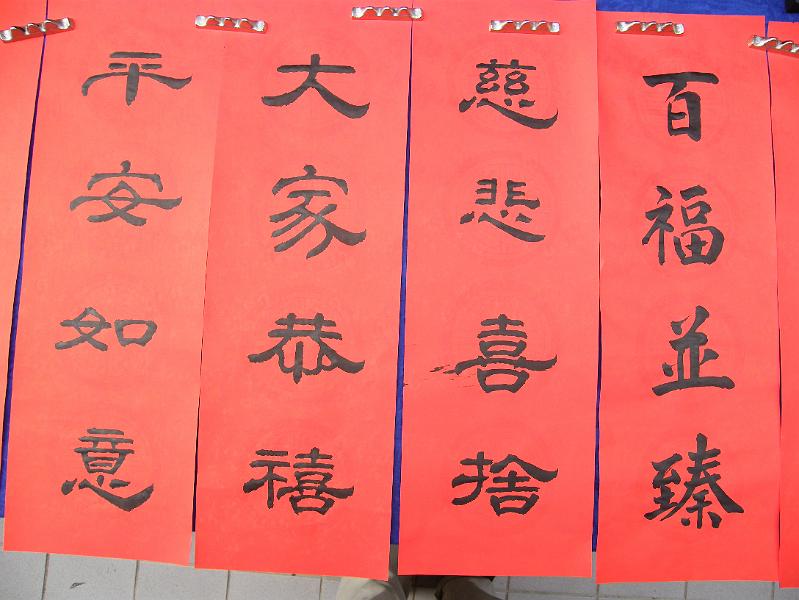 百福並臻
慈悲喜捨
大家恭禧
平安如意